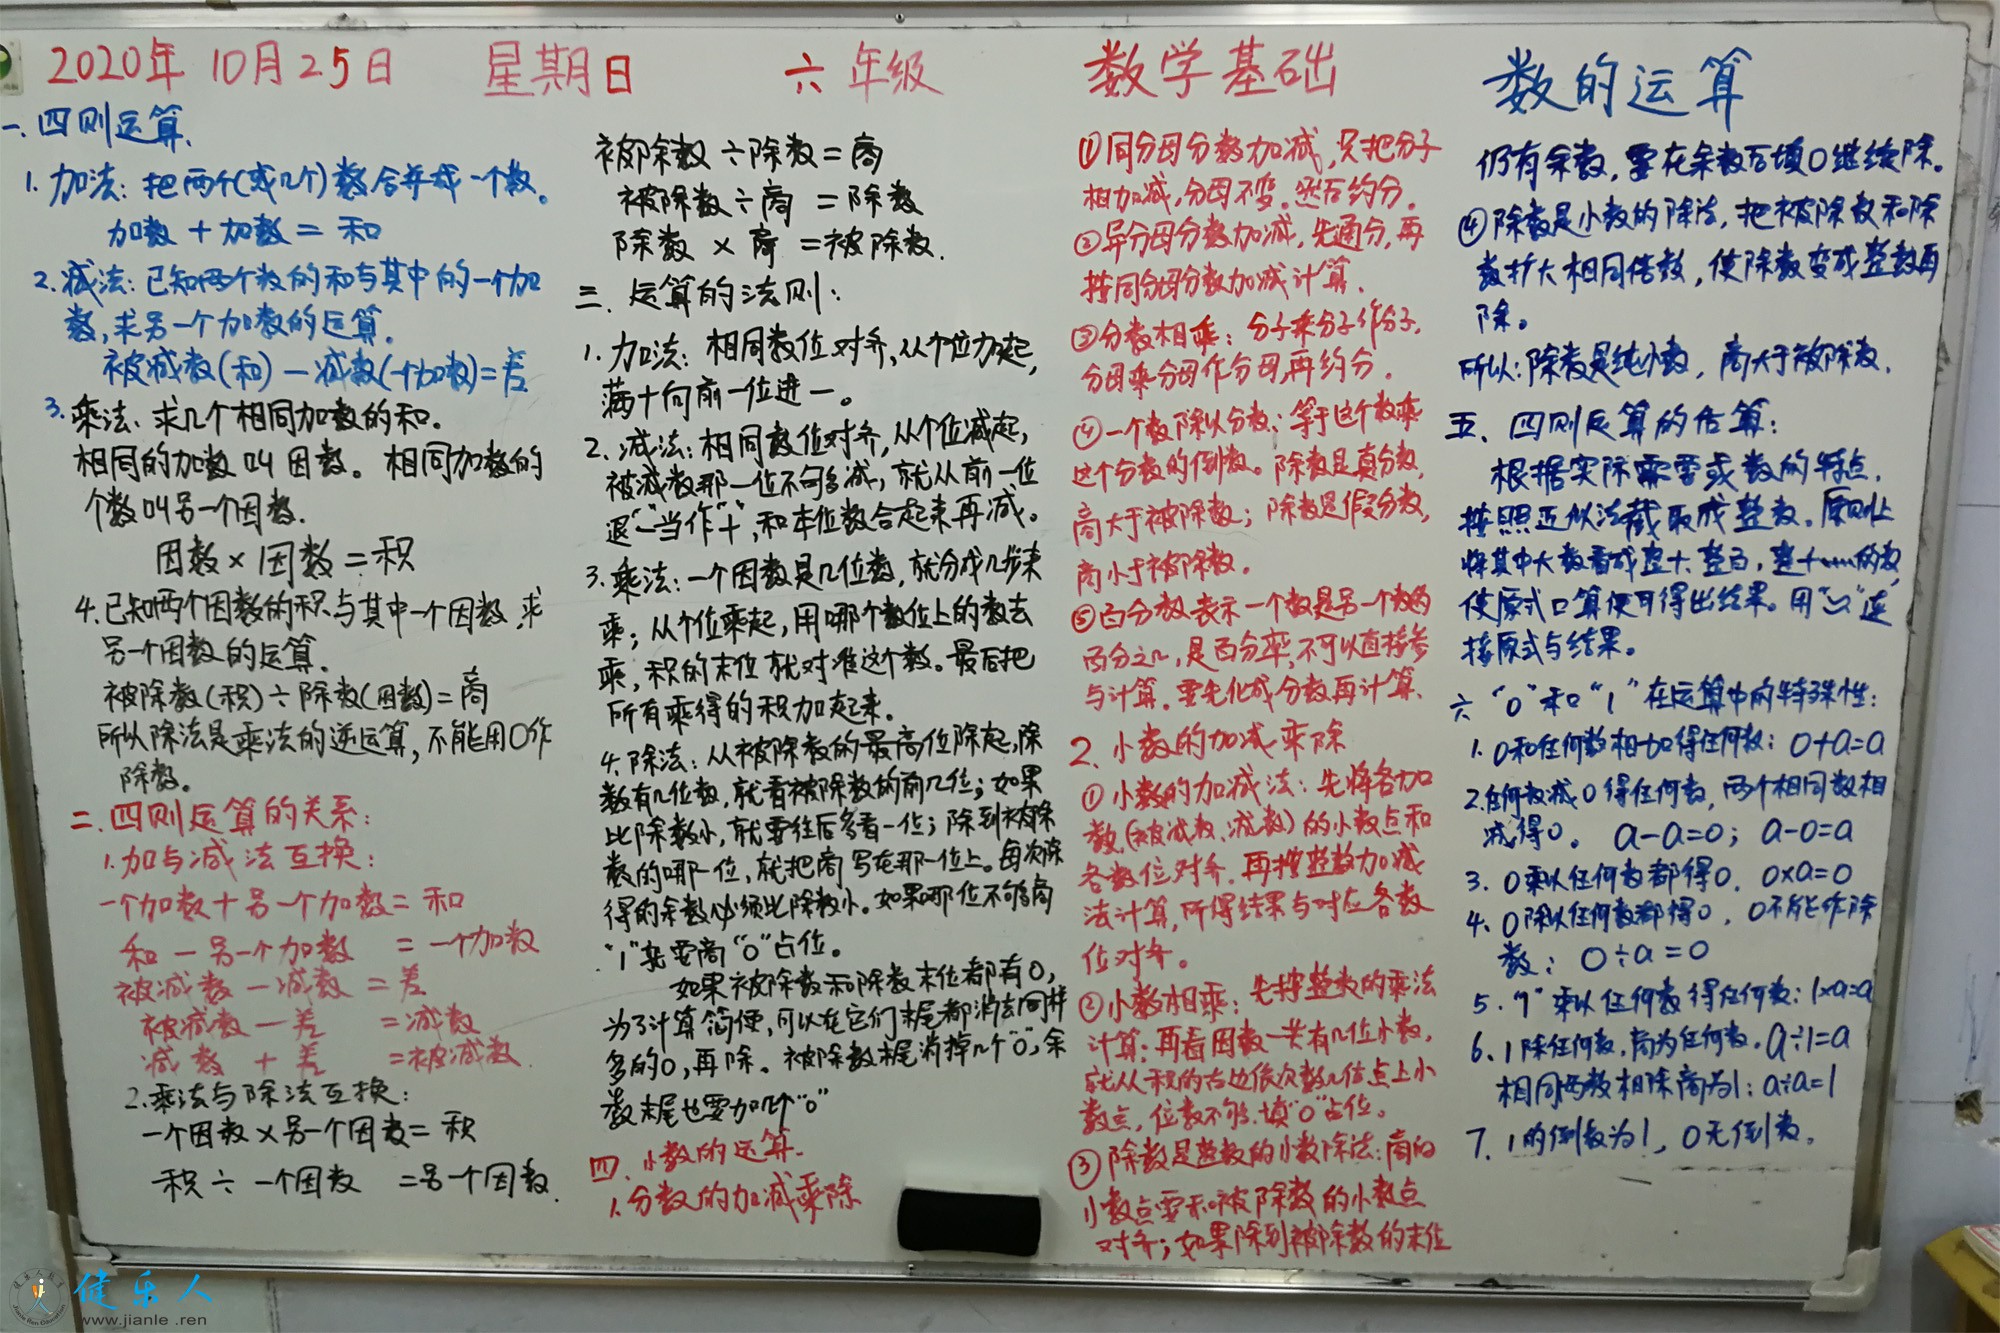 2020年 10月25日 星期日 六年级 数学基础 数的运算
一. 四则运算.
1. 加法: 把两个(或几个)数合并成一个数。
加数 + 加数 = 和
2. 减法: 已知两个数的和与其中的一个加
数, 求另一个加数的运算.
被减数(和) - 减数(个加数)=差
3. 乘法: 求几个相同加数的和.
相同的加数叫因数。相同加数的
个数叫另一个因数.
因数 × 因数 = 积
4. 已知两个因数的积与其中一个因数, 求
另一个因数的运算.
被除数(积) ÷ 除数(因数)=商
所以除法是乘法的逆运算, 不能用0作
除数。
二. 四则运算的关系:
1. 加与减法互换:
一个加数 + 另一个加数 = 和
和 - 另一个加数 = 一个加数
被减数 - 减数 = 差
被减数 - 差 = 减数
减数 + 差 = 被减数
2. 乘法与除法互换:
一个因数 × 另一个因数 = 积
积 ÷ 一个因数 = 另一个因数.
被除数 ÷ 除数 = 商
被除数 ÷ 商 = 除数
除数 × 商 = 被除数.
三. 运算的法则:
1. 加法: 相同数位对齐, 从个位加起,
满十向前一位进一。
2. 减法: 相同数位对齐, 从个位减起,
被减数那一位不够减, 就从前一位
退"一"当作"十", 和本位数合起来再减。
3. 乘法: 一个因数是几位数, 就分成几步来
乘; 从个位乘起, 用哪个数位上的数去
乘, 积的末位就对准这个数。最后把
所有乘得的积加起来.
4. 除法: 从被除数的最高位除起, 除
数有几位数, 就看被除数的前几位; 如果
比除数小, 就要往后多看一位; 除到被除
数的哪一位, 就把商写在那一位上。每次除
得的余数必须比除数小. 如果哪位不够商
"1"就要商"0"占位。
如果被除数和除数末位都有0,
为了计算简便, 可以在它们末尾都消去同样
多的0, 再除。被除数末尾消掉几个"0", 余
数末尾也要加几个"0"
四. 小数的运算.
1. 分数的加减乘除
①同分母分数加减, 只把分子
相加减, 分母不变。然后约分.
②异分母分数加减, 先通分, 再
按同分母分数加减计算.
③分数相乘: 分子乘分子作分子,
分母乘分母作分母, 再约分.
④一个数除以分数: 等于这个数乘
这个分数的倒数。除数是真分数,
商大于被除数; 除数是假分数,
商小于被除数.
⑤百分数表示一个数是另一个数的
百分之几, 是百分率, 不可以直接参
与计算. 要先化成分数再计算.
2. 小数的加减乘除
①小数的加减法: 先将各加
数(被减数、减数)的小数点和
各数位对齐. 再按整数加减
法计算, 所得结果与对应各数
位对齐。
②小数相乘: 先按整数的乘法
计算; 再看因数一共有几位小数,
就从积的右边依次数几位点上小
数点, 位数不够, 填"0"占位。
③除数是整数的小数除法: 商的
小数点要和被除数的小数点
对齐; 如果除到被除数的末位
仍有余数, 要在余数后填0继续除.
④除数是小数的除法, 把被除数和除
数扩大相同倍数, 使除数变成整数再
除。
所以: 除数是纯小数, 商大于被除数.
五. 四则运算的估算:
根据实际需要或数的特点,
按照近似法截取成整数. 原则上
将其中大数看成整十、整百, 整千……的数,
使原式口算便可得出结果。用"≈"连
接原式与结果。
六 "0"和"1"在运算中的特殊性:
1. 0和任何数相加得任何数: 0+a=a
2. 任何数减0得任何数, 两个相同数相
减得0。 a-a=0; a-0=a
3. 0乘以任何数都得0. 0×a=0
4. 0除以任何数都得0, 0不能作除
数: 0÷a=0
5. "1"乘以任何数得任何数: 1×a=a
6. 1除任何数, 商为任何数. a÷1=a
相同两数相除商为1: a÷a=1
7. 1的倒数为1, 0无倒数.
健乐人
www.jianle.ren